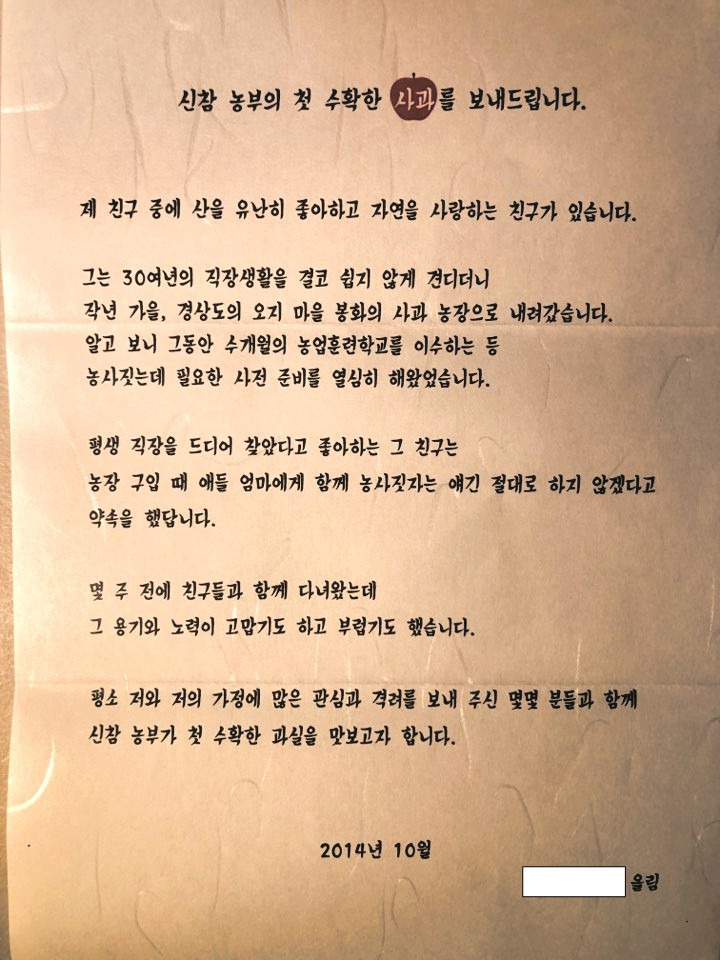 신참 농부의 첫 수확한 사과를 보내드립니다.
제 친구 중에 산을 유난히 좋아하고 자연을 사랑하는 친구가 있습니다.
그는 30여년의 직장생활을 결코 쉽지 않게 견디더니
작년 가을, 경상도의 오지 마을 봉화의 사과 농장으로 내려갔습니다.
알고 보니 그동안 수개월의 농업훈련학교를 이수하는 등
농사짓는데 필요한 사전 준비를 열심히 해왔었습니다.
평생 직장을 드디어 찾았다고 좋아하는 그 친구는
농장 구입 때 애들 엄마에게 함께 농사짓자는 얘긴 절대로 하지 않겠다고
약속을 했답니다.
몇 주 전에 친구들과 함께 다녀왔는데
그 용기와 노력이 고맙기도 하고 부럽기도 했습니다.
평소 저와 저의 가정에 많은 관심과 격려를 보내 주신 몇몇 분들과 함께
신참 농부가 첫 수확한 과실을 맛보고자 합니다.
2014년 10월
올림